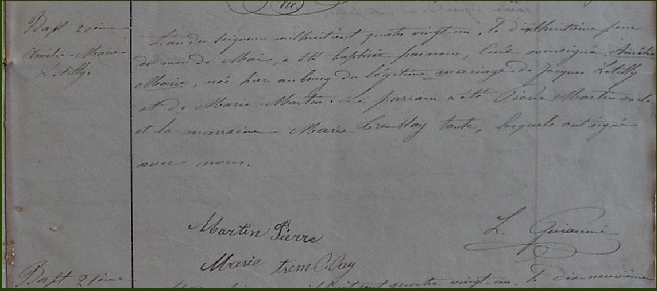 Bapt 20ième
Amélie-Marie
Letilly.
L'an du Seigneur mil huit cent quatre vingt-un, le dixhuitième jour
du mois de Mai, a été baptisée par nous, Curé soussigné Amélie
Marie, née hier au bourg du légitime mariage de Jacques Letilly
et de Marie Martin. Le parrain a été Pierre Martin oncle
et la marraine Marie Tremblay tante, lesquels ont signé
avec nous.
Martin Pierre
L.
Marie tremblay
Bapt 21ième
huit cent quatre vingt-un, le dixneuvième